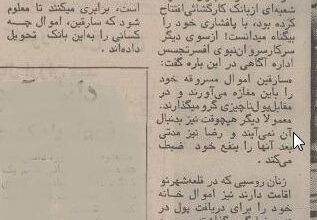 شعبه‌ای ازبانک کارگشائی‌افتتاح
کرده بود، با پافشاری خود را
بیگناه میدانست! ازسوی دیگر
سرکارسروان‌نبوی افسرتجسس
اداره آگاهی در این باره گفت:
سارقین اموال مسروقه خود
را باین مغازه می‌آورند و در
مقابل‌پول‌ناچیزی گرومیگذارند.
معمولا دیگر هیچوقت نیز بدنبال
آن نمی‌آیند و رضا نیز مدتی
بعد آنها را بنفع خود ضبط
می‌کند.
زنان روسپی که در قلعه‌شهرنو
اقامت دارند نیز اموال خانه
خود را برای دریافت پول در
است، برابری میکنند تا معلوم
شود که سارقین، اموال چه
کسانی را به‌این بانک تحویل
داده‌اند.